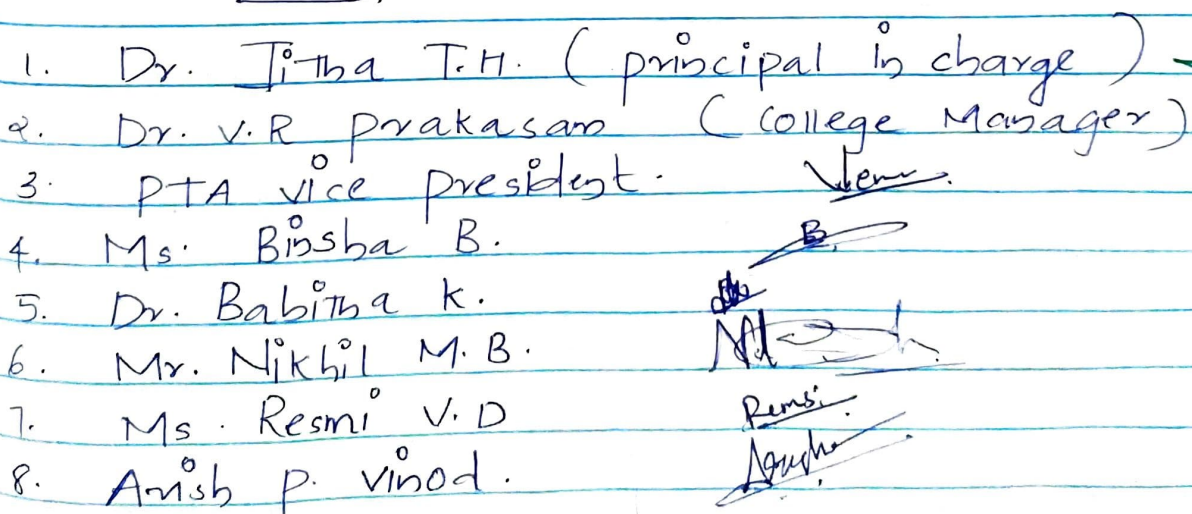 1. Dr. Jitha T.H. (principal in charge)
2. Dr. V.R prakasan (College Manager)
3. PTA vice president.
4. Ms. Binsha B. B.
5. Dr. Babitha K.
6. Mr. Nikhil M.B.
7. Ms. Resmi V.D Remsi
8. p. Vinod.